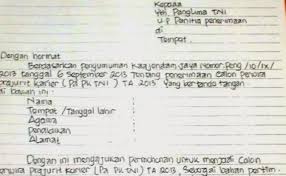 Kepada
Yth. Panglima TNI
U.p Panitia penerimaan
di
Tempat.
Dengan hormat
Berdasarkan pengumuman Kaajendam Jaya Nomor Peng /10/IX/
2013 tanggal 6 September 2013 Tentang penerimaan calon perwira
prajurit karier (Pa PK TNI) TA 2013 yang bertanda tangan
di bawah ini :
Nama :
Tempat /Tanggal lahir :
Agama :
Pendidikan :
Alamat :
Dengan ini mengajukan permohonan untuk menjadi Calon
perwira prajurit karier (Pa PK TNI) TA 2013. Sebagai bahan pertim-